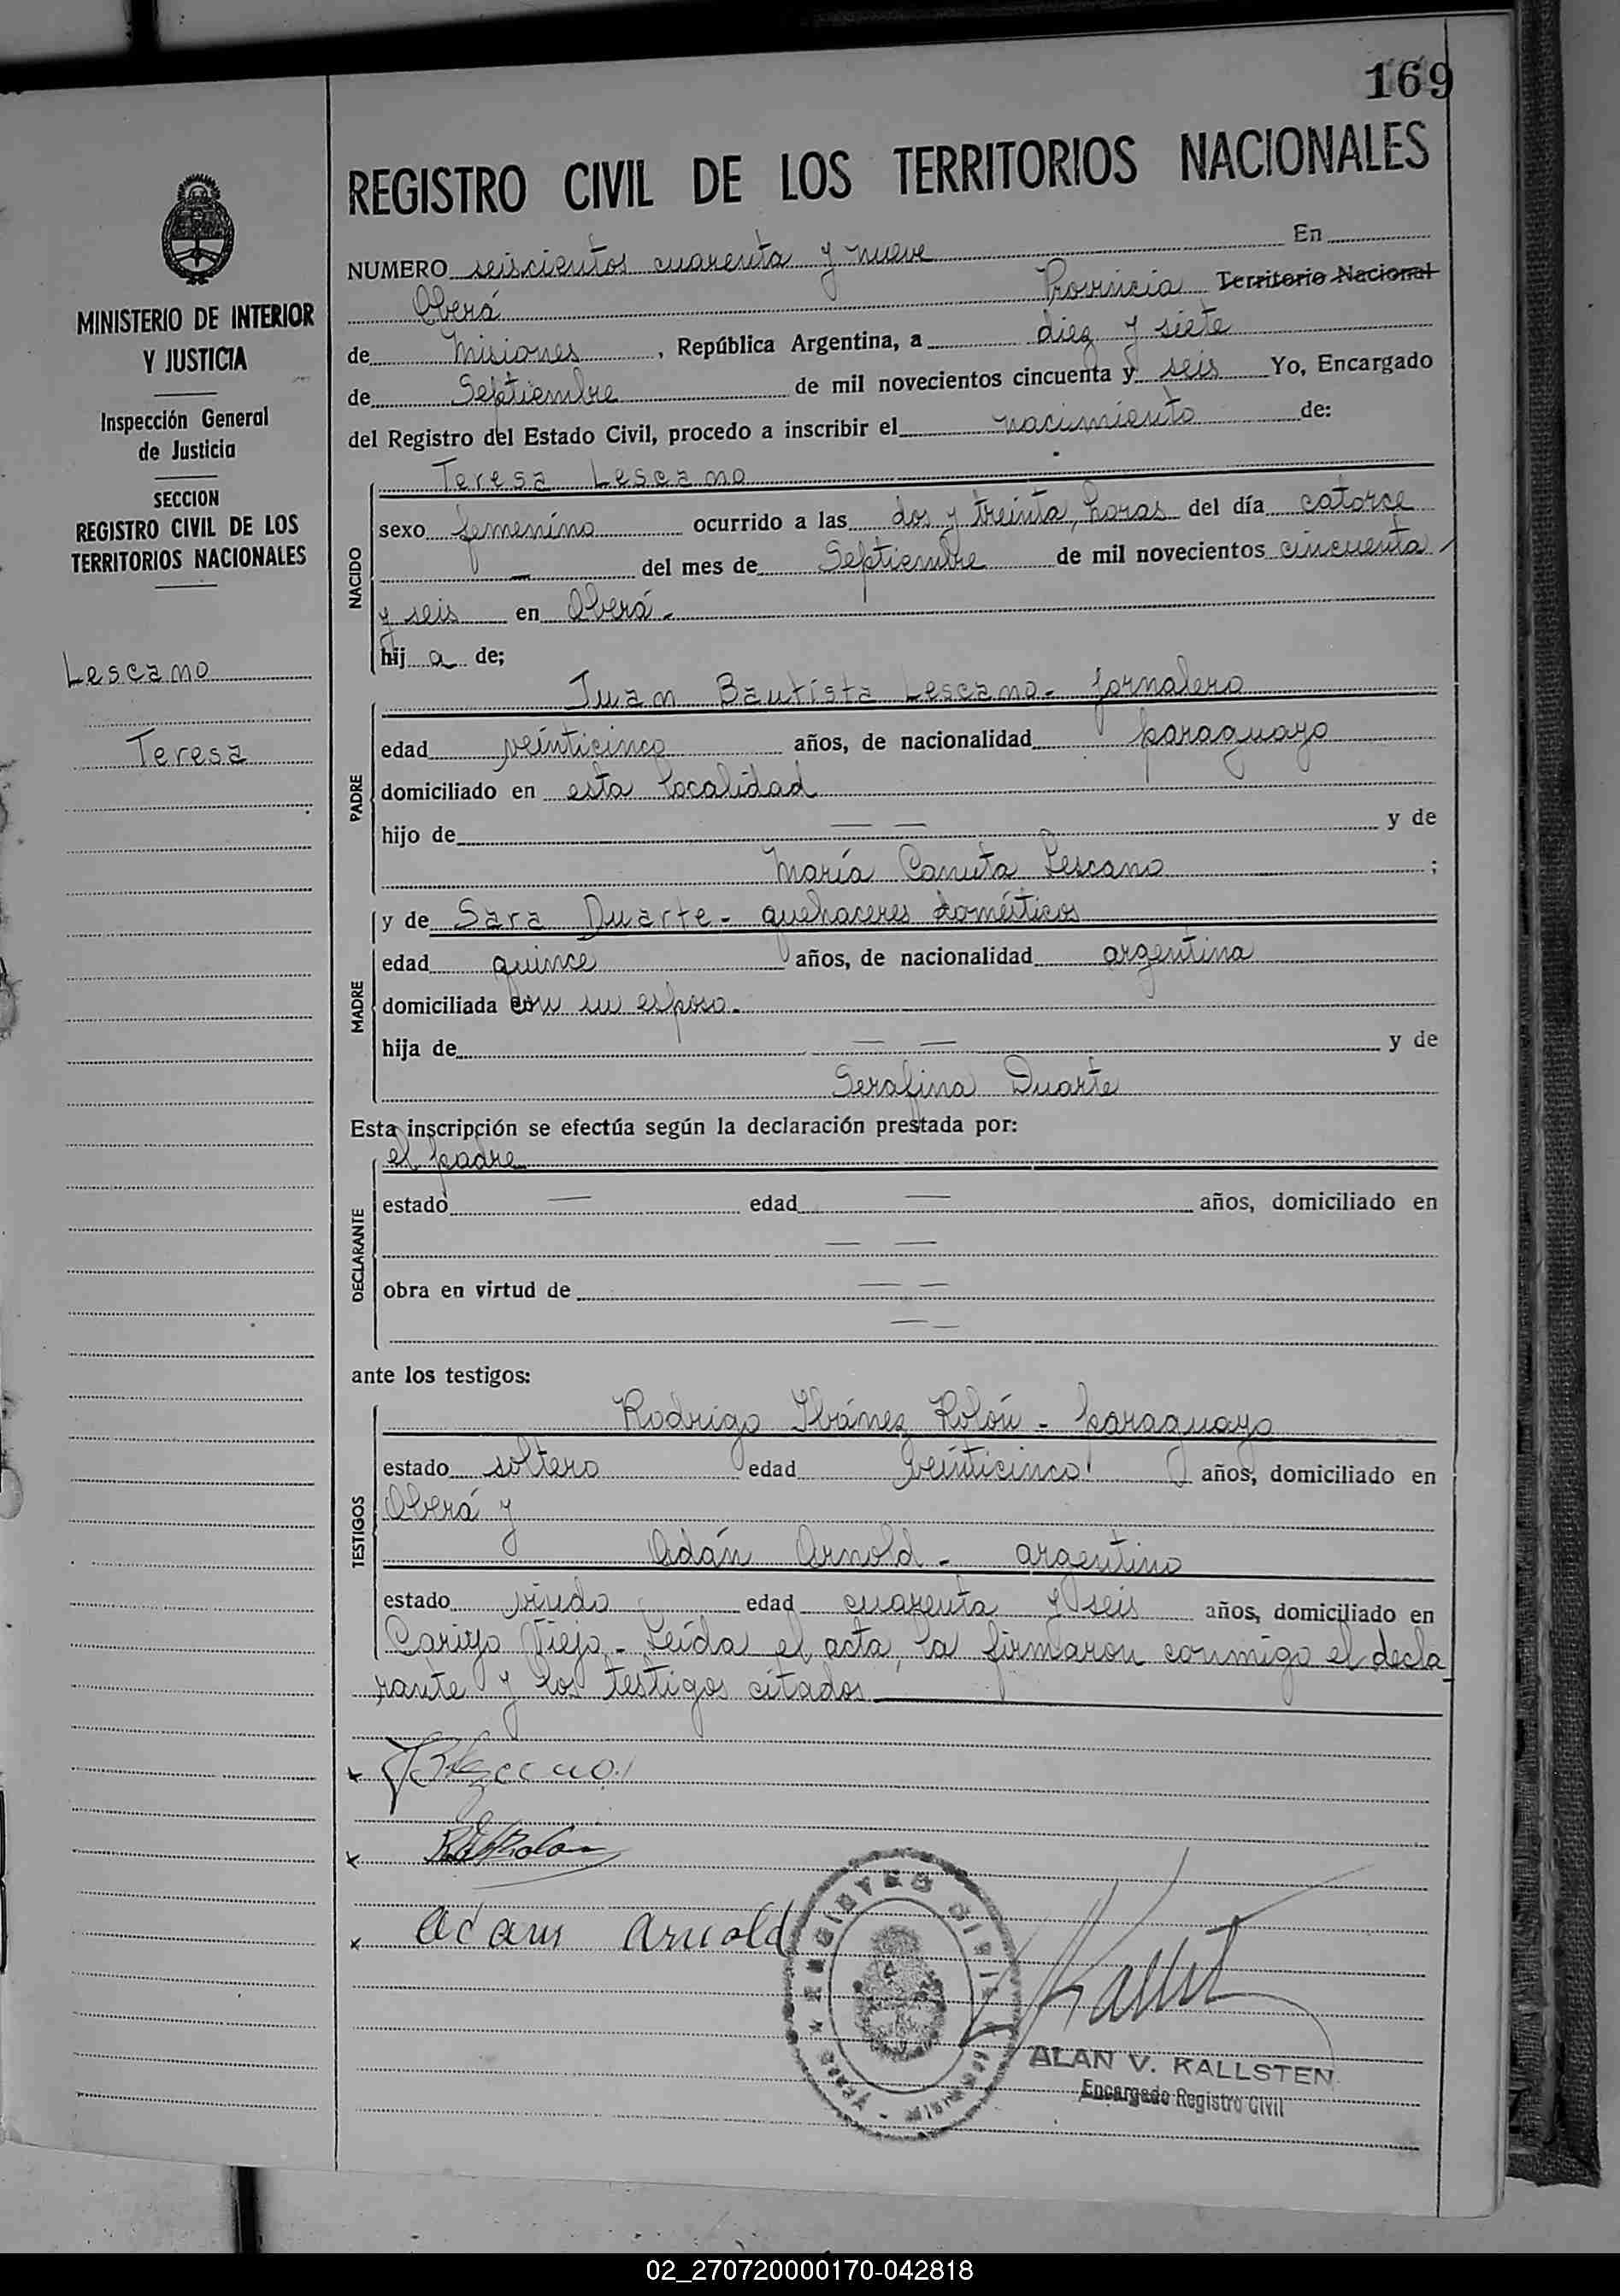 169
REGISTRO CIVIL DE LOS TERRITORIOS NACIONALES
NUMERO seiscientos cuarenta y nueve En
Oberá Provincia Territorio Nacional
de Misiones, República Argentina, a diez y siete
de Septiembre de mil novecientos cincuenta y seis Yo, Encargado
del Registro del Estado Civil, procedo a inscribir el nacimiento de:
MINISTERIO DE INTERIOR
Y JUSTICIA
Inspección General
de Justicia
SECCION
REGISTRO CIVIL DE LOS
TERRITORIOS NACIONALES
Lescano
Teresa
NACIDO
Teresa Lescano
sexo femenino ocurrido a las dos y treinta, horas del día catorce
— del mes de Septiembre de mil novecientos cincuenta
y seis en Oberá.-
hij a de;
PADRE
Juan Bautista Lescano - jornalero
edad veinticinco años, de nacionalidad paraguayo
domiciliado en esta localidad
hijo de — — y de
María Canuta Lescano ;
MADRE
y de Sara Duarte - quehaceres domésticos
edad quince años, de nacionalidad argentina
domiciliada con su esposo.
hija de — — y de
Serafina Duarte
Esta inscripción se efectúa según la declaración prestada por:
DECLARANTE
el padre
estado — edad — años, domiciliado en
— —
obra en virtud de — —
— —
ante los testigos:
TESTIGOS
Rodrigo Ibánez Rolón - paraguayo
estado soltero edad veinticinco años, domiciliado en
Oberá y
Adán Arnold - argentino
estado viudo edad cuarenta y seis años, domiciliado en
Viejo - Leída el acta, la firmaron conmigo el decla
rante y los testigos citados
x
x
x Adam Arnold
REGISTRO CIVIL
ALAN V. KALLSTEN
Encargado Registro Civil
02_270720000170-042818